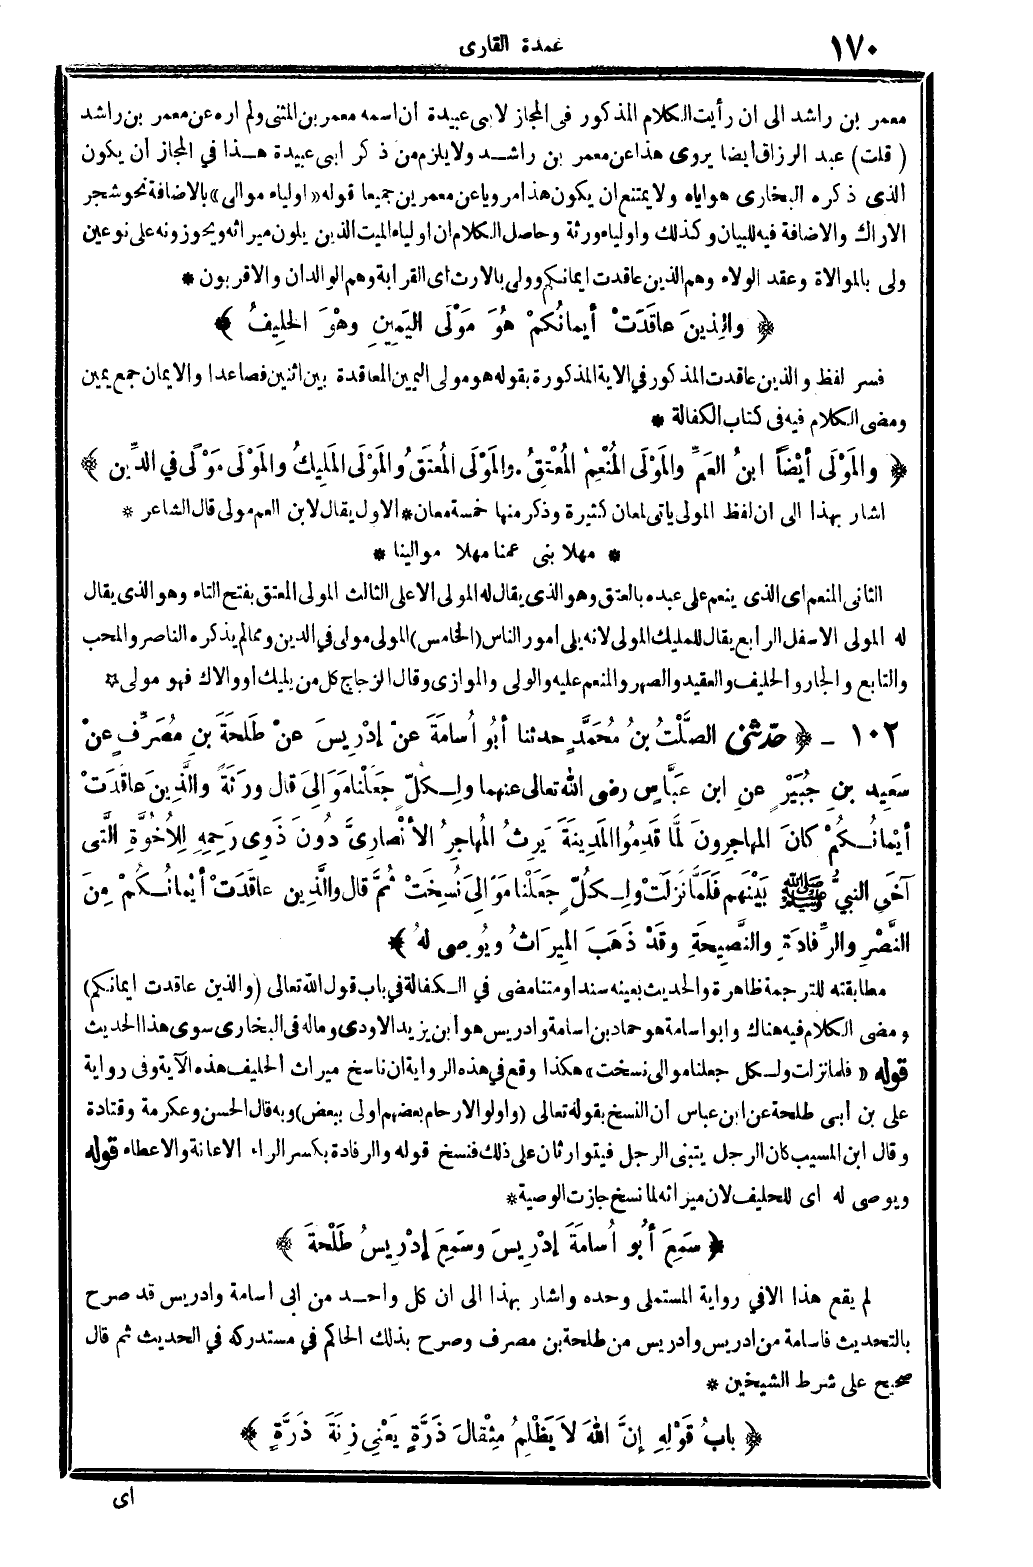 ١٧٠
عمدة القارى
معمر بن راشد الى ان رأيت الكلام المذكور فى المجاز لابى عبيدة ان اسمه معمر بن المثنى ولم اره عن معمر بن راشد
( قلت) عبد الرزاق ايضا يروى هذا عن معمر بن راشد ولا يلزم من ذكر ابى عبيدة هذا في المجاز ان يكون
الذى ذكره البخارى هو اياه ولا يمتنع ان يكون هذا مرويا عن معمرين جميعا قوله «اولياء موالى» بالاضافة نحو شجر
الاراك والاضافة فيه للبيان وكذلك واولياء ورثة وحاصل الكلام ان اولياء الميت الذين يلون ميراثه ويحوزونه على نوعين
ولى بالموالاة وعقد الولاء وهم الذين عاقدت ايمانكم وولى بالارث اى القرابة وهم الوالدان والاقربون *
﴿ والذِينَ عاقَدَتْ أيمانُكمْ هُوَ مَوْلَى اليَمِينِ وهْوَ الحَلِيفُ ﴾
فسر لفظ والذين عاقدت المذكور في الاية المذكورة بقوله هو مولى اليمين المعاقدة بين اثنين فصاعدا والايمان جمع يمين
ومضى الكلام فيه فى كتاب الكفالة *
﴿ والمَوْلَى أيْضاً ابنُ العَمِّ والمَوْلَى المُنْعِمُ المُعْتِقُ . والمَوْلَى المُعتَقُ والمَوْلَى المَلِيكُ والمَوْلَى مَوْلًى في الدِّينِ ﴾
اشار بهذا الى ان لفظ المولى ياتى لمعان كثيرة وذكر منها خمسة معان * الاول يقال لابن العم مولى قال الشاعر *
* مهلا بنى عمنا مهلا موالينا *
الثانى المنعم اى الذى ينعم على عبده بالعتق وهو الذى يقال له المولى الاعلى الثالث المولى المعتق بفتح التاء وهو الذى يقال
له المولى الاسفل الرابع يقال للمليك المولى لانه يلى أمور الناس (الخامس) المولى مولى في الدين ومما لم يذكره الناصر والمحب
والتابع والجار والحليف والعقيد والصهر والمنعم عليه والولى والموازى وقال الزجاج كل من يليك او والاك فهو مولى *
١٠٢ - ﴿ حَدثنى الصَّلْتُ بنُ مُحَمَّدٍ حدثنا أبُو اُسامَةَ عنْ إدْرِيسَ عنْ طَلْحَةَ بنِ مُصَرِّفٍ عنْ
سَعِيد بنِ جُبَيْرٍ عنِ ابنِ عَبَّاسٍ رضى الله تعالى عنهما ولِكُلٍّ جَعَلْنا مَوَالِىَ قال ورَثَةً والَّذِينَ عاقَدَتْ
أيْمانُكُمْ كانَ المُهاجِرونَ لَمَّا قَدِمُوا المَدِينَةَ يَرِثُ المُهاجِرُ الأنْصارِىَّ دُونَ ذَوِى رَحِمِهِ لِلأُخُوَّةِ الَّتى
آخَى النبيُّ ﷺ بَيْنَهم فَلَمَّا نَزَلَتْ ولِكُلٍّ جَعَلْنا مَوَالِىَ نُسِخَتْ ثمَّ قال والَّذِين عاقَدَتْ أيْمانُكُمْ مِنَ
النَّصْرِ والرِّفادَةِ والنَّصِيحَةِ وقَدْ ذَهَبَ المِيرَاثُ ويُوصِى لهُ ﴾
مطابقته للترجمة ظاهرة والحديث بعينه سندا ومتنا مضى في الكفالة في باب قول الله تعالى (والذين عاقدت ايمانكم)
ومضى الكلام فيه هناك وابو اسامة هو حماد بن اسامة وادريس هو ابن يزيد الاودى وماله فى البخارى سوى هذا الحديث
قوله « فلما نزلت ولكل جعلنا موالى نسخت » هكذا وقع في هذه الرواية ان ناسخ ميراث الحليف هذه الآية وفى رواية
على بن أبى طلحة عن ابن عباس ان النسخ بقوله تعالى (واولو الارحام بعضهم اولى ببعض) وبه قال الحسن وعكرمة وقتادة
وقال ابن المسيب كان الرجل يتبنى الرجل فيتوارثان على ذلك فنسخ قوله والرفادة بكسر الراء الاعانة والاعطاء قوله
ويوصى له اى للحليف لان ميراثه لما نسخ جازت الوصية *
﴿ سَمِعَ أبُو اُسامَةَ إدْرِيسَ وسَمِعَ إدْرِيسُ طَلْحةَ ﴾
لم يقع هذا الا في رواية المستملى وحده واشار بهذا الى ان كل واحد من ابى أسامة وادريس قد صرح
بالتحديث فاسامة من ادريس وادريس من طلحة بن مصرف وصرح بذلك الحاكم في مستدركه في الحديث ثم قال
صحيح على شرط الشيخين *
﴿ بابُ قَوْلِهِ إنَّ اللهَ لاَ يَظْلِمُ مِثْقالَ ذَرَّةٍ يَعْنِى زِنَةَ ذَرَّةٍ ﴾
اى